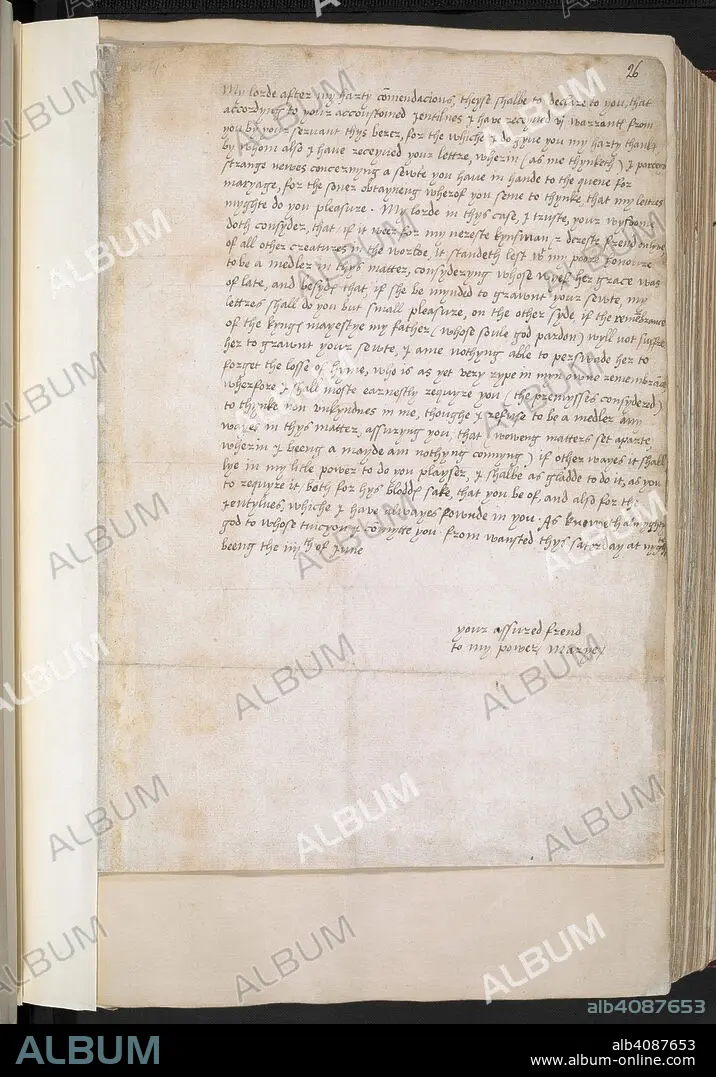 26
My lorde after my harty cōmendacions, theyse shalbe to declare to you, that
accordyng to your accustomed jentilnes I have receyved warrants from
you by your servant thys berer, for the whiche I do gyve you my harty thanks
by whom also I have receyved your lettre, wherin (as me thynketh) I perceve
strange newes concernyng a sewte you have in hande to the quene for
maryage, for the soner obtayneng wherof you seme to thynke, that my lettres
myghte do you pleasure. My lorde in thys case, I truste, your wysdome
doth consyder, that if it wer for my nereste kynsman & dereste frend on lyve
of all other creatures in the worlde, it standeth lest wt my poore honoure
to be a medler in thys matter, consyderyng whose wief her grace was
of late, and besyde that if she be mynded to grawnt your sewte, my
lettres shall do you but small pleasure, on the other syde if the remembrance
of the kyngs mayestye my father (whose soule god pardon) wyll not suffre
her to grawnt your sewte, I ame nothyng able to perswade her to
forget the losse of hyme, who is as yet very rype in myn owne remembrance
wherfore I shall moste earnestly requyre you (the premysses consydered)
to thynke non unkyndnes in me, thoughe I refuse to be a medler any
wayes in thys matter, assuryng you, that woweng matters set aparte,
wherin I beeng a mayde am nothyng connyng) if other wayes it shall
lye in my litle power to do you playser, I shalbe as gladde to do it, as you
to requyre it, both for hys blodds sake, that you be of, and also for the
jentylnes, whiche I have alwayes fownde in you. As knoweth almyghty
god to whose tuicyon I comytte you. From wansted thys saterday at nyght
beeng the iiijth of June
your assured frend
to my power, Marye
ALBUM
alb4087653
ALBUM
alb4087653
www.album-online.com